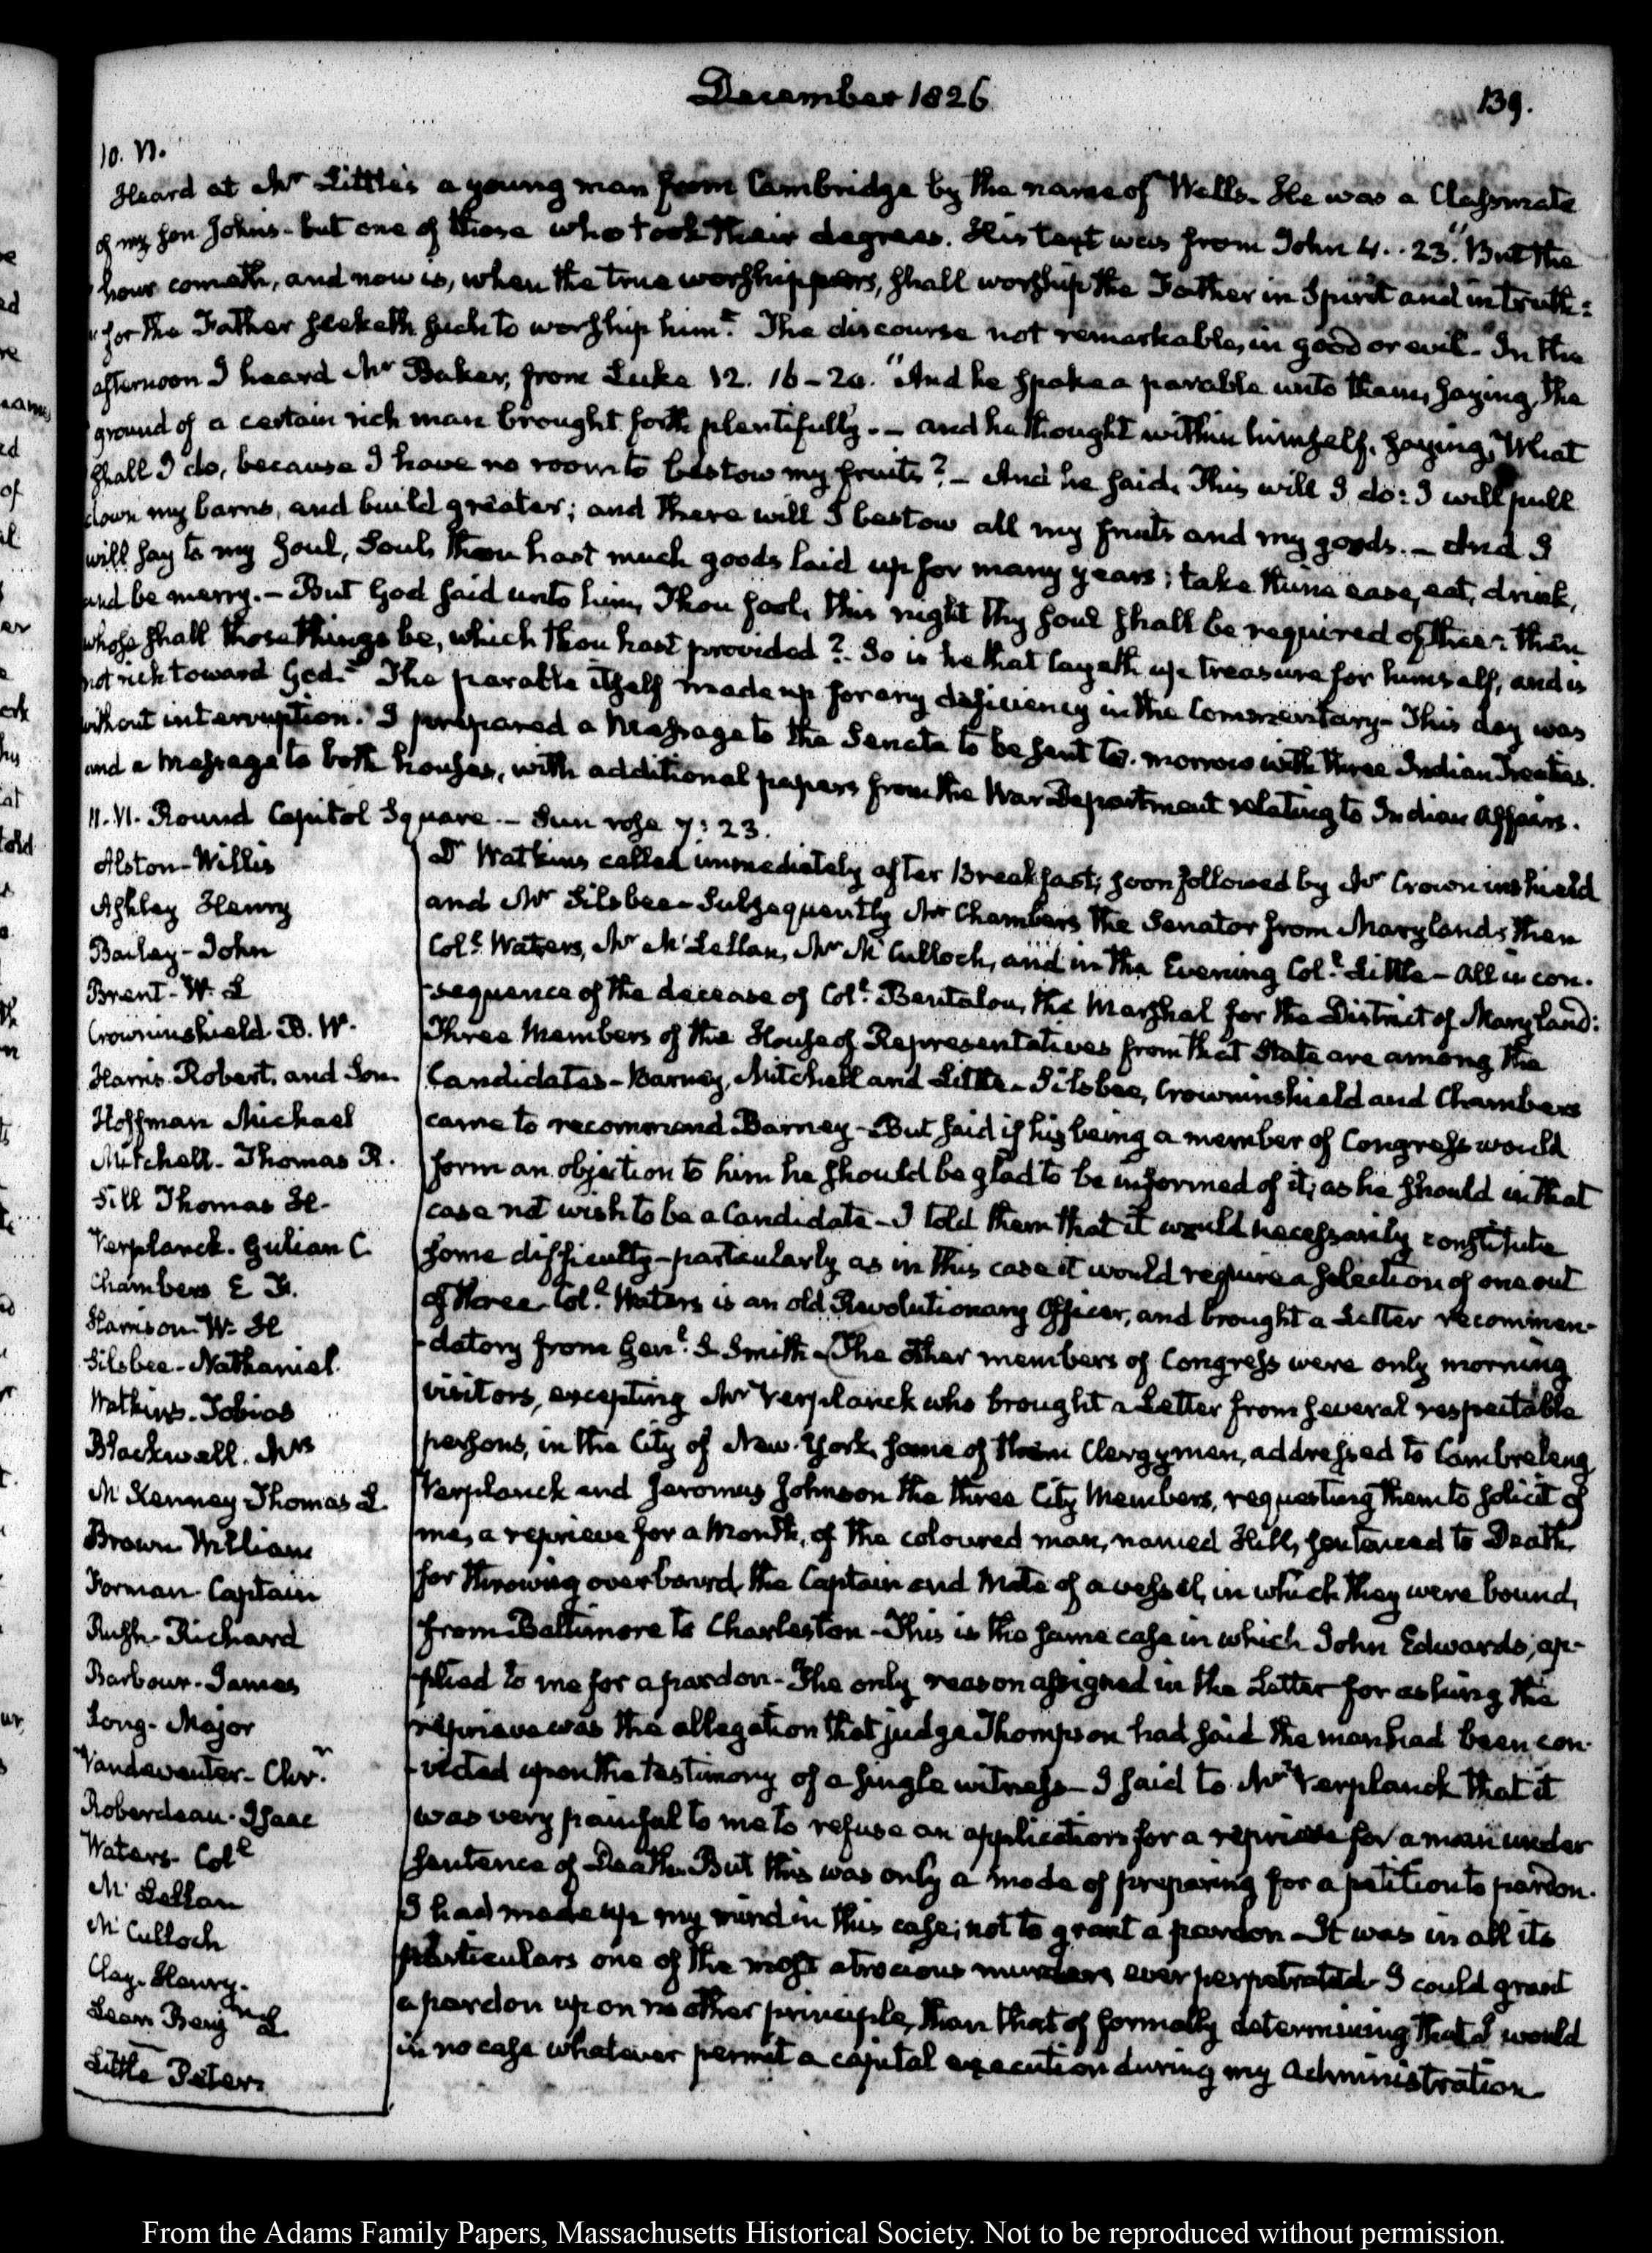 December 1826
139.
10. VI.
Heard at Mr Little's a young man from Cambridge by the name of Wells. He was a Classmate
of my Son John's - but one of those who took their degrees. His text was from John 4. . 23. "But the
hour cometh, and now is, when the true worshippers, shall worship the Father in Spirit and in truth:
"for the Father seeketh such to worship him." The discourse not remarkable, in good or evil. In the
afternoon I heard Mr Baker, from Luke 12. 16-20. "And he spake a parable unto them, saying, The
ground of a certain rich man brought forth plentifully. - and he thought within himself, saying, What
shall I do, because I have no room to bestow my fruits? - And he said, This will I do: I will pull
down my barns, and build greater; and there will I bestow all my fruits and my goods. - And I
will say to my Soul, Soul, thou hast much goods laid up for many years; take thine ease, eat, drink,
and be merry. - But God said unto him, Thou fool, this night thy soul shall be required of thee: then
whose shall those things be, which thou hast provided? - So is he that layeth up treasure for himself, and is
not rich toward God." The parable itself made up for any deficiency in the Commentary - This day was
without interruption. I prepared a Message to the Senate to be sent to-morrow with three Indian Treaties.
and a Message to both houses, with additional papers from the War Department relating to Indian Affairs.
11. VI. Round Capitol Square. - Sun rose 7: 23.
Alston - Willis
Ashley Henry
Bailey - John
Brent - W. L
Crowninshield. B. W.
Harris. Robert, and Son.
Hoffman Michael
Mitchell - Thomas R.
Sill Thomas H.
Verplanck. Gulian C.
Chambers E F.
Harrison W. H
Silsbee - Nathaniel.
Watkins. Tobias
Blackwell. Mrs
McKenney Thomas L.
Brown William
Forman Captain
Rush - Richard
Barbour - James
Long - Major
Vandeventer - Chr.
Roberdeau - Isaac
Waters - Coll
McLellan
McCulloch
Clay. Henry.
Lear Benj. L.
Little Peter.
Dr Watkins called immediately after Breakfast; soon followed by Mr Crowninshield
and Mr Silsbee - Subsequently Mr Chambers the Senator from Maryland; then
Coll. Waters, Mr McLellan, Mr McCulloch, and in the Evening Coll. Little - All in con-
-sequence of the decease of Coll. Bentalou, the Marshal for the District of Maryland:
Three Members of the House of Representatives from that State are among the
Candidates - Barney, Mitchell and Little - Silsbee, Crowninshield and Chambers
came to recommend Barney - But said if his being a member of Congress would
form an objection to him he should be glad to be informed of it; as he should in that
case not wish to be a Candidate - I told them that it would necessarily constitute
some difficulty - particularly as in this case it would require a selection of one out
of three. Coll. Waters is an old Revolutionary Officer, and brought a Letter recommen-
-datory from Genl. S. Smith - The other members of Congress were only morning
visitors, excepting Mr Verplanck who brought a Letter from several respectable
persons, in the City of New-York, some of them Clergymen, addressed to Cambreleng
Verplanck and Jeromus Johnson the three City Members, requesting them to solicit of
me, a reprieve for a Month, of the coloured man, named Hill, sentenced to Death,
for throwing overboard, the Captain and Mate of a vessel, in which they were bound,
from Baltimore to Charleston - This is the same case in which John Edwards, ap-
-plied to me for a pardon - The only reason assigned in the Letter for asking the
reprieve was the allegation that judge Thompson had said the man had been con-
-victed upon the testimony of a single witness - I said to Mr Verplanck that it
was very painful to me to refuse an application for a reprieve for a man under
sentence of Death. But this was only a mode of preparing for a petition to pardon.
I had made up my mind in this case, not to grant a pardon - It was in all its
particulars one of the most atrocious murders ever perpetrated - I could grant
a pardon upon no other principle, than that of formally determining that I would
in no case whatever permit a capital execution during my Administration
From the Adams Family Papers, Massachusetts Historical Society. Not to be reproduced without permission.